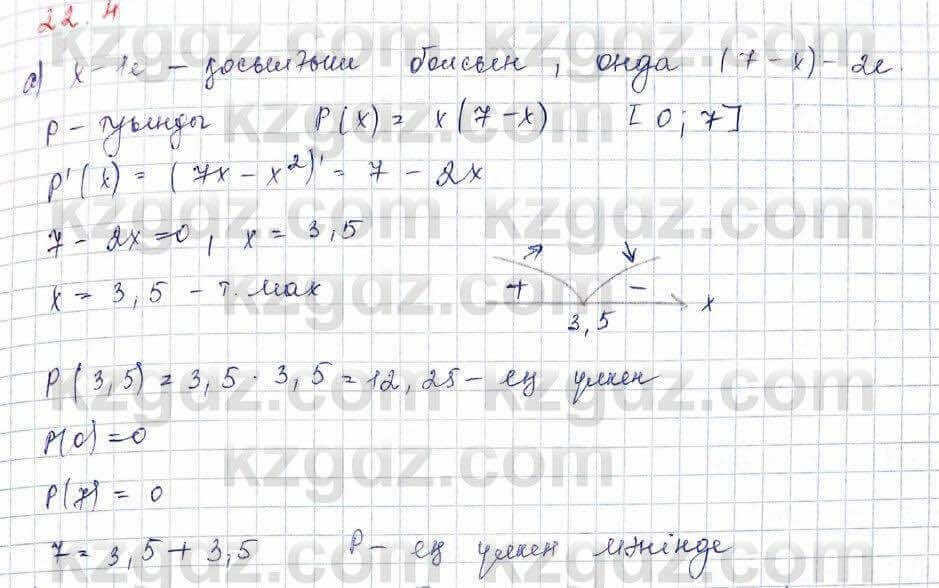 22.4
a) x - 1с - қосылғыш болсын, онда (7 - x) - 2с.
P - туынды P(x) = x(7 - x) [0; 7]
P'(x) = (7x - x²)' = 7 - 2x
7 - 2x = 0, x = 3,5
x = 3,5 - т. max
+ - x
3,5
P(3,5) = 3,5 · 3,5 = 12,25 - ең үлкен
P(0) = 0
P(7) = 0
7 = 3,5 + 3,5 P - ең үлкен мәнінде
kzgdz.com
kzgdz.com
kzgdz.com
kzgdz.com
kzgdz.com
kzgdz.com
kzgdz.com
kzgdz.com